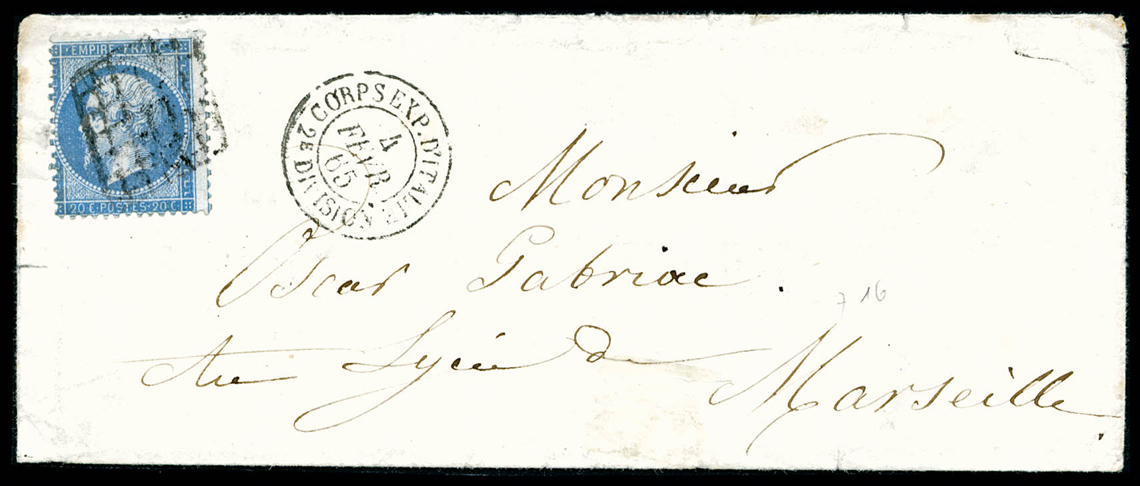 EMPIRE FRANC
20 C. POSTES 20 C.
CORPS EXP. D'ITALIE
4
FEVR
65
2E DIVISION
Monsieur
Oscar Gabriac.
Au Lycée de
Marseille.
716